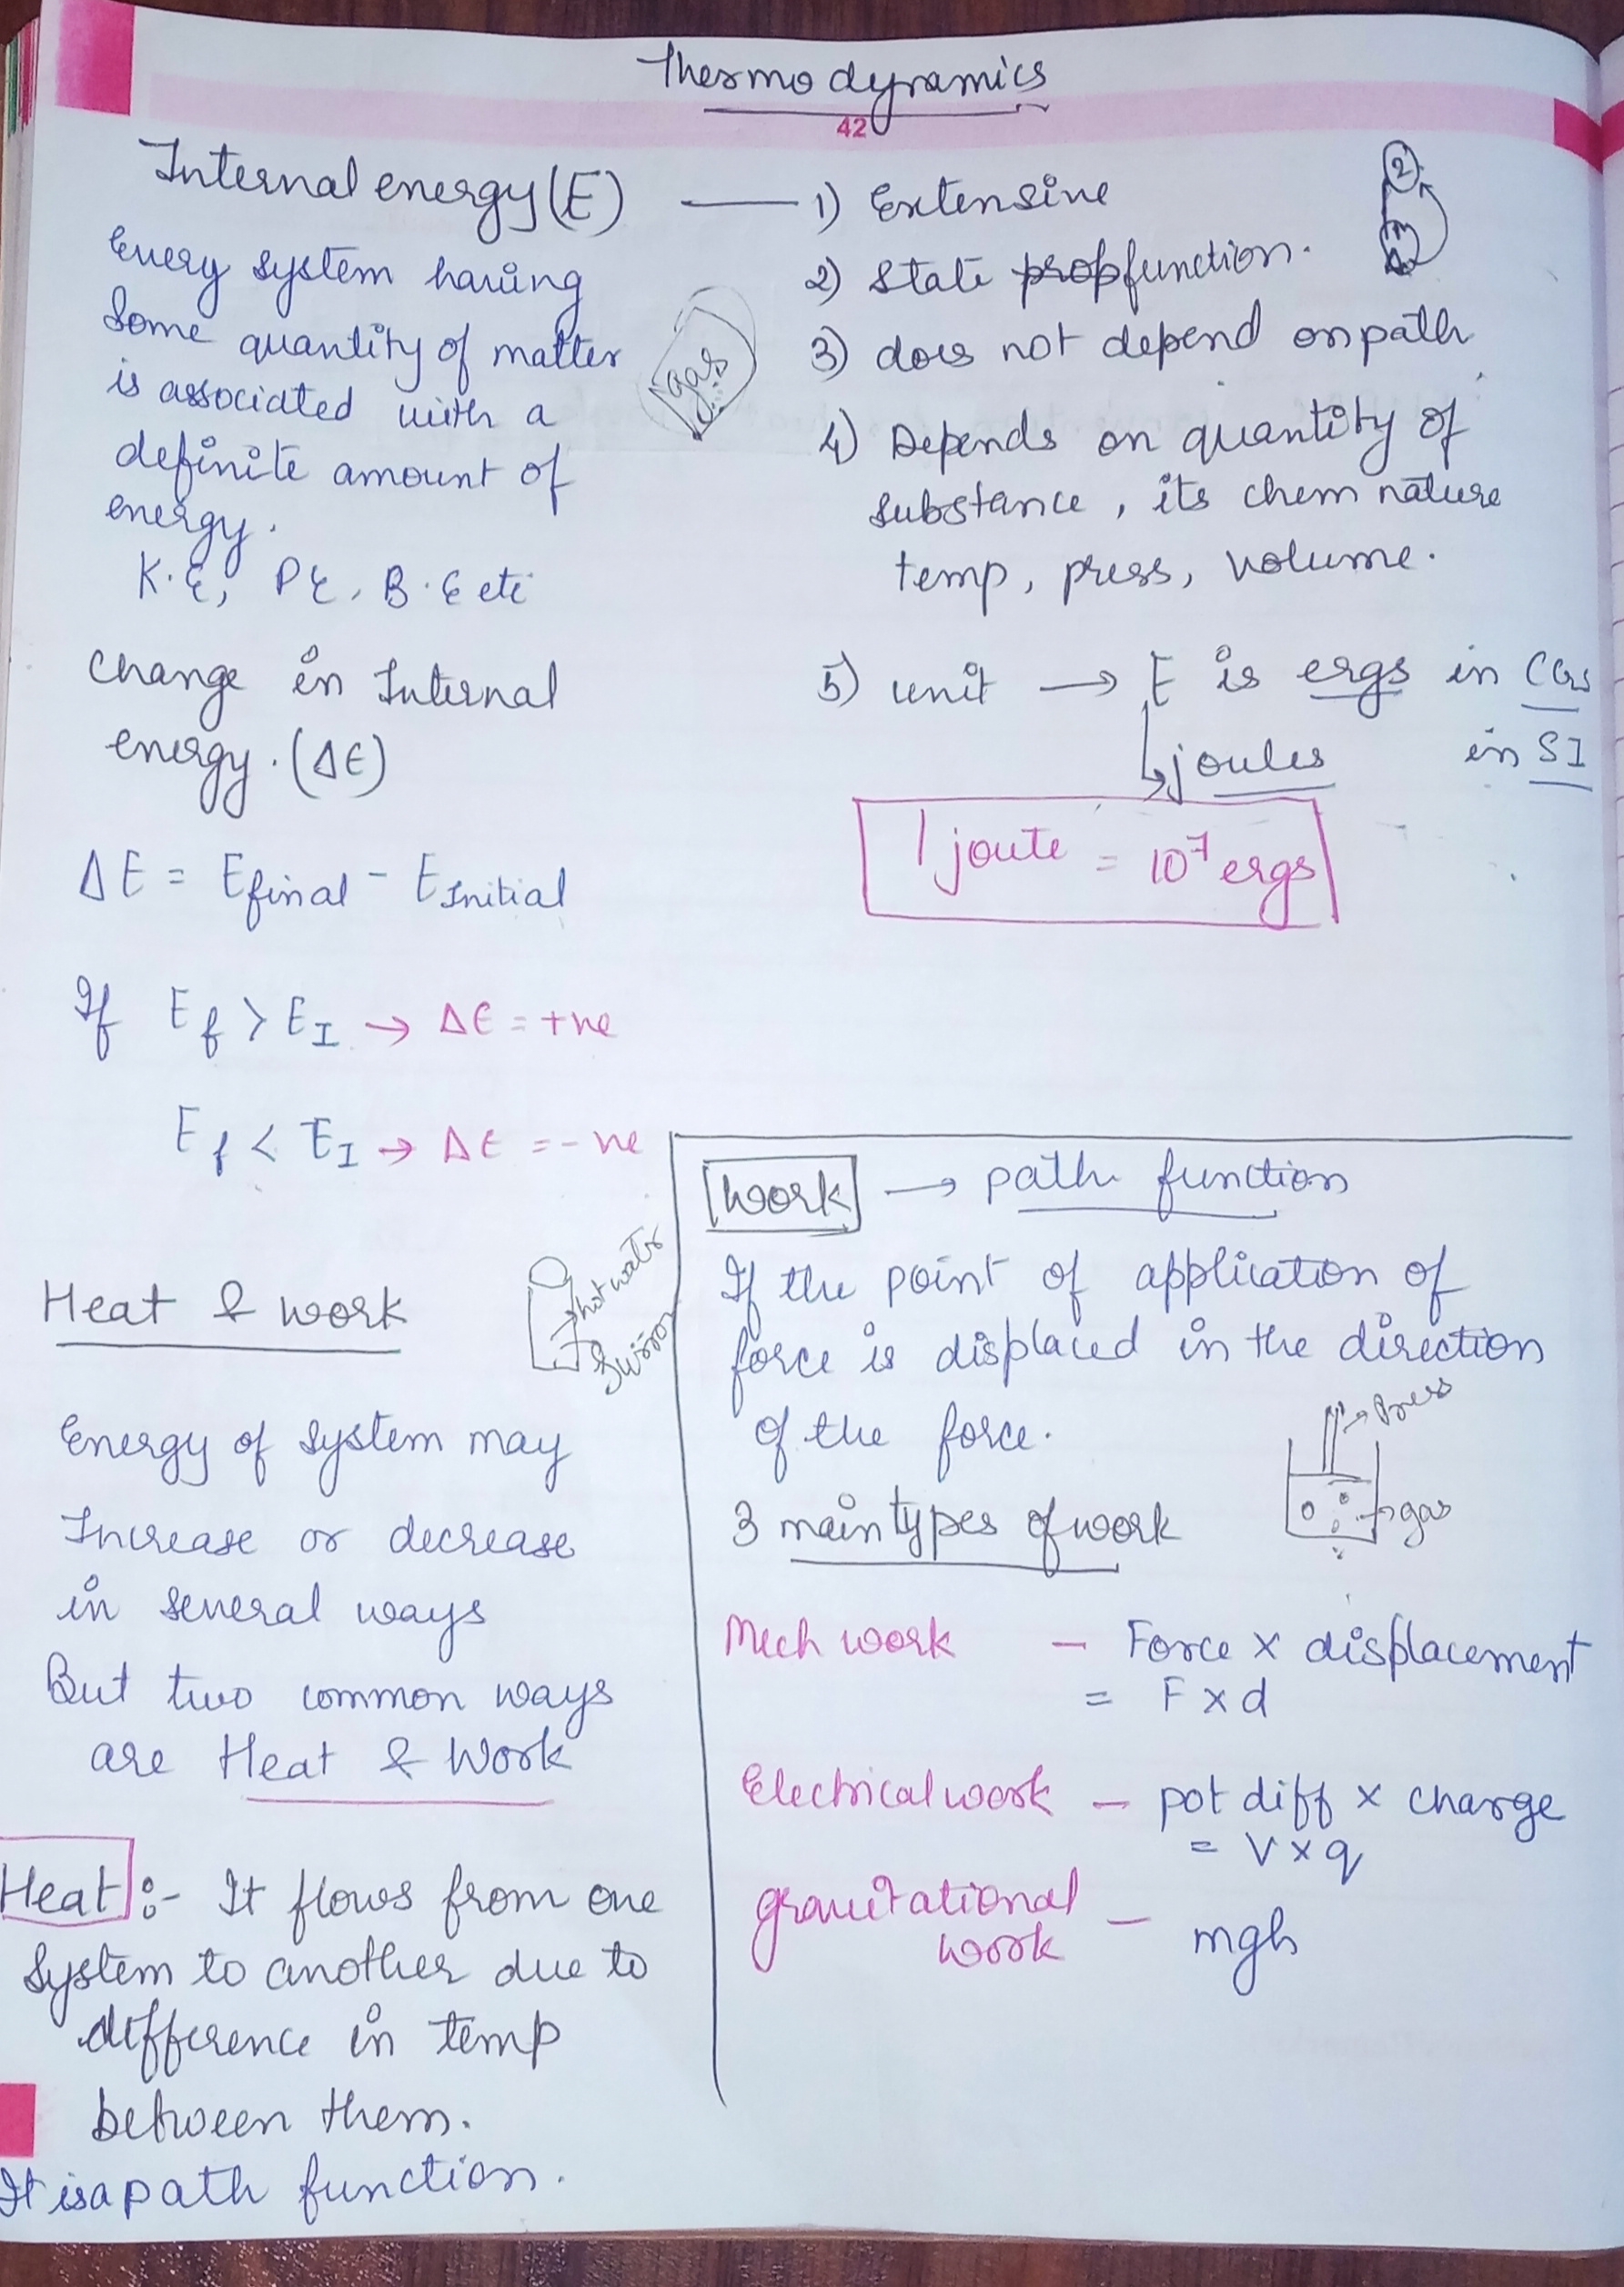 Thermodynamics
42
Internal energy (E)
Every system having
some quantity of matter
is associated with a
definite amount of
energy.
K.E, PE, B.E etc
gas
Change in Internal
energy. (ΔE)
ΔE = Efinal - EInitial
If Ef > EI → ΔE = +ve
Ef < EI → ΔE = -ve
— 1) Extensive
2) State prop function.
3) does not depend on path
4) Depends on quantity of
substance, its chem nature
temp, press, volume.
5) unit → E is ergs in CGS
↳ joules in SI
1 joule = 10⁷ ergs
2
Heat & work
hot water
Energy of system may
Increase or decrease
in several ways
But two common ways
are Heat & Work
Heat :- It flows from one
system to another due to
difference in temp
between them.
It is a path function.
Work → path function
If the point of application of
force is displaced in the direction
of the force.
→ Press
→ gas
3 main types of work
Mech work — Force × displacement
= F × d
Electrical work — pot diff × charge
= V × q
gravitational
work — mgh